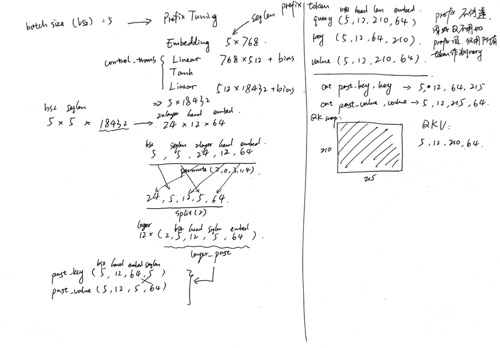 batch size (bsz) = 5
Prefix Tuning
seqlen
Embedding 5 × 768
control_trans { Linear 768 × 512 + bias
Tanh
Linear 512 × 18432 + bias
⇒ 5 × 18432
bsz seqlen 2×layer head embed
5 × 5 × 18432 → 24 × 12 × 64
bsz seqlen 2layer head embed
5, 5, 24, 12, 64
permute (2,0,3,1,4)
24, 5, 12, 5, 64
split(2)
layer bsz head seqlen embed
12 × (2, 5, 12, 5, 64)
layer_past
bsz head embed seqlen
past_key (5, 12, 64, 5)
past_value (5, 12, 5, 64)
prefix
token bsz head len embed
query (5, 12, 210, 64)
key (5, 12, 64, 210)
value (5, 12, 210, 64)
prefix 不传递
token 的 query
cat past_key, key → 5, 12, 64, 215
cat past_value, value → 5, 12, 215, 64
QK
210
215
QKV:
5, 12, 210, 64